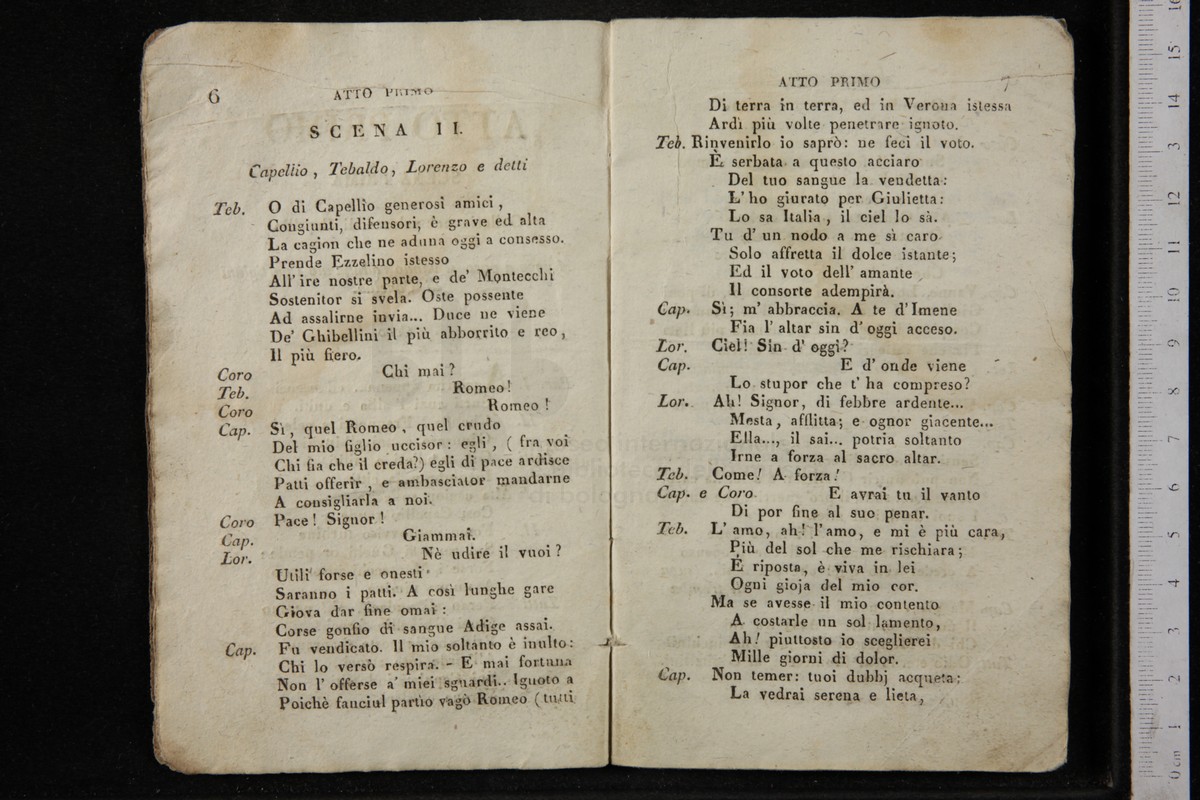 6
ATTO PRIMO
SCENA II.
Capellio, Tebaldo, Lorenzo e detti
Teb. O di Capellio generosi amici,
Congiunti, difensori, è grave ed alta
La cagion che ne aduna oggi a consesso.
Prende Ezzelino istesso
All' ire nostre parte, e de' Montecchi
Sostenitor si svela. Oste possente
Ad assalirne invia... Duce ne viene
De' Ghibellini il più abborrito e reo,
Il più fiero.
Coro Chi mai?
Teb. Romeo!
Coro Romeo!
Cap. Sì, quel Romeo, quel crudo
Del mio figlio uccisor: egli, (fra voi
Chi fia che il creda?) egli di pace ardisce
Patti offerir, e ambasciator mandarne
A consigliarla a noi.
Coro Pace! Signor!
Cap. Giammai.
Lor. Nè udire il vuoi?
Utili forse e onesti
Saranno i patti. A così lunghe gare
Giova dar fine omai:
Corse gonfio di sangue Adige assai.
Cap. Fu vendicato. Il mio soltanto è inulto:
Chi lo versò respira. - E mai fortuna
Non l' offerse a' miei sguardi.. Ignoto a
Poichè fanciul partìo vagò Romeo (tutti
ATTO PRIMO 7
Di terra in terra, ed in Verona istessa
Ardì più volte penetrare ignoto.
Teb. Rinvenirlo io saprò: ne feci il voto.
È serbata a questo acciaro
Del tuo sangue la vendetta:
L' ho giurato per Giulietta:
Lo sa Italia, il ciel lo sà.
Tu d' un nodo a me sì caro
Solo affretta il dolce istante;
Ed il voto dell' amante
Il consorte adempirà.
Cap. Sì; m' abbraccia. A te d' Imene
Fia l' altar sin d' oggi acceso.
Lor. Ciel! Sin d' oggi?
Cap. E d' onde viene
Lo stupor che t' ha compreso?
Lor. Ah! Signor, di febbre ardente...
Mesta, afflitta; e ognor giacente...
Ella..., il sai... potria soltanto
Irne a forza al sacro altar.
Teb. Come! A forza!
Cap. e Coro E avrai tu il vanto
Di por fine al suo penar.
Teb. L' amo, ah! l' amo, e mi è più cara,
Più del sol che me rischiara;
È riposta, è viva in lei
Ogni gioja del mio cor.
Ma se avesse il mio contento
A costarle un sol lamento,
Ah! piuttosto io sceglierei
Mille giorni di dolor.
Cap. Non temer: tuoi dubbj acqueta:
La vedrai serena e lieta,